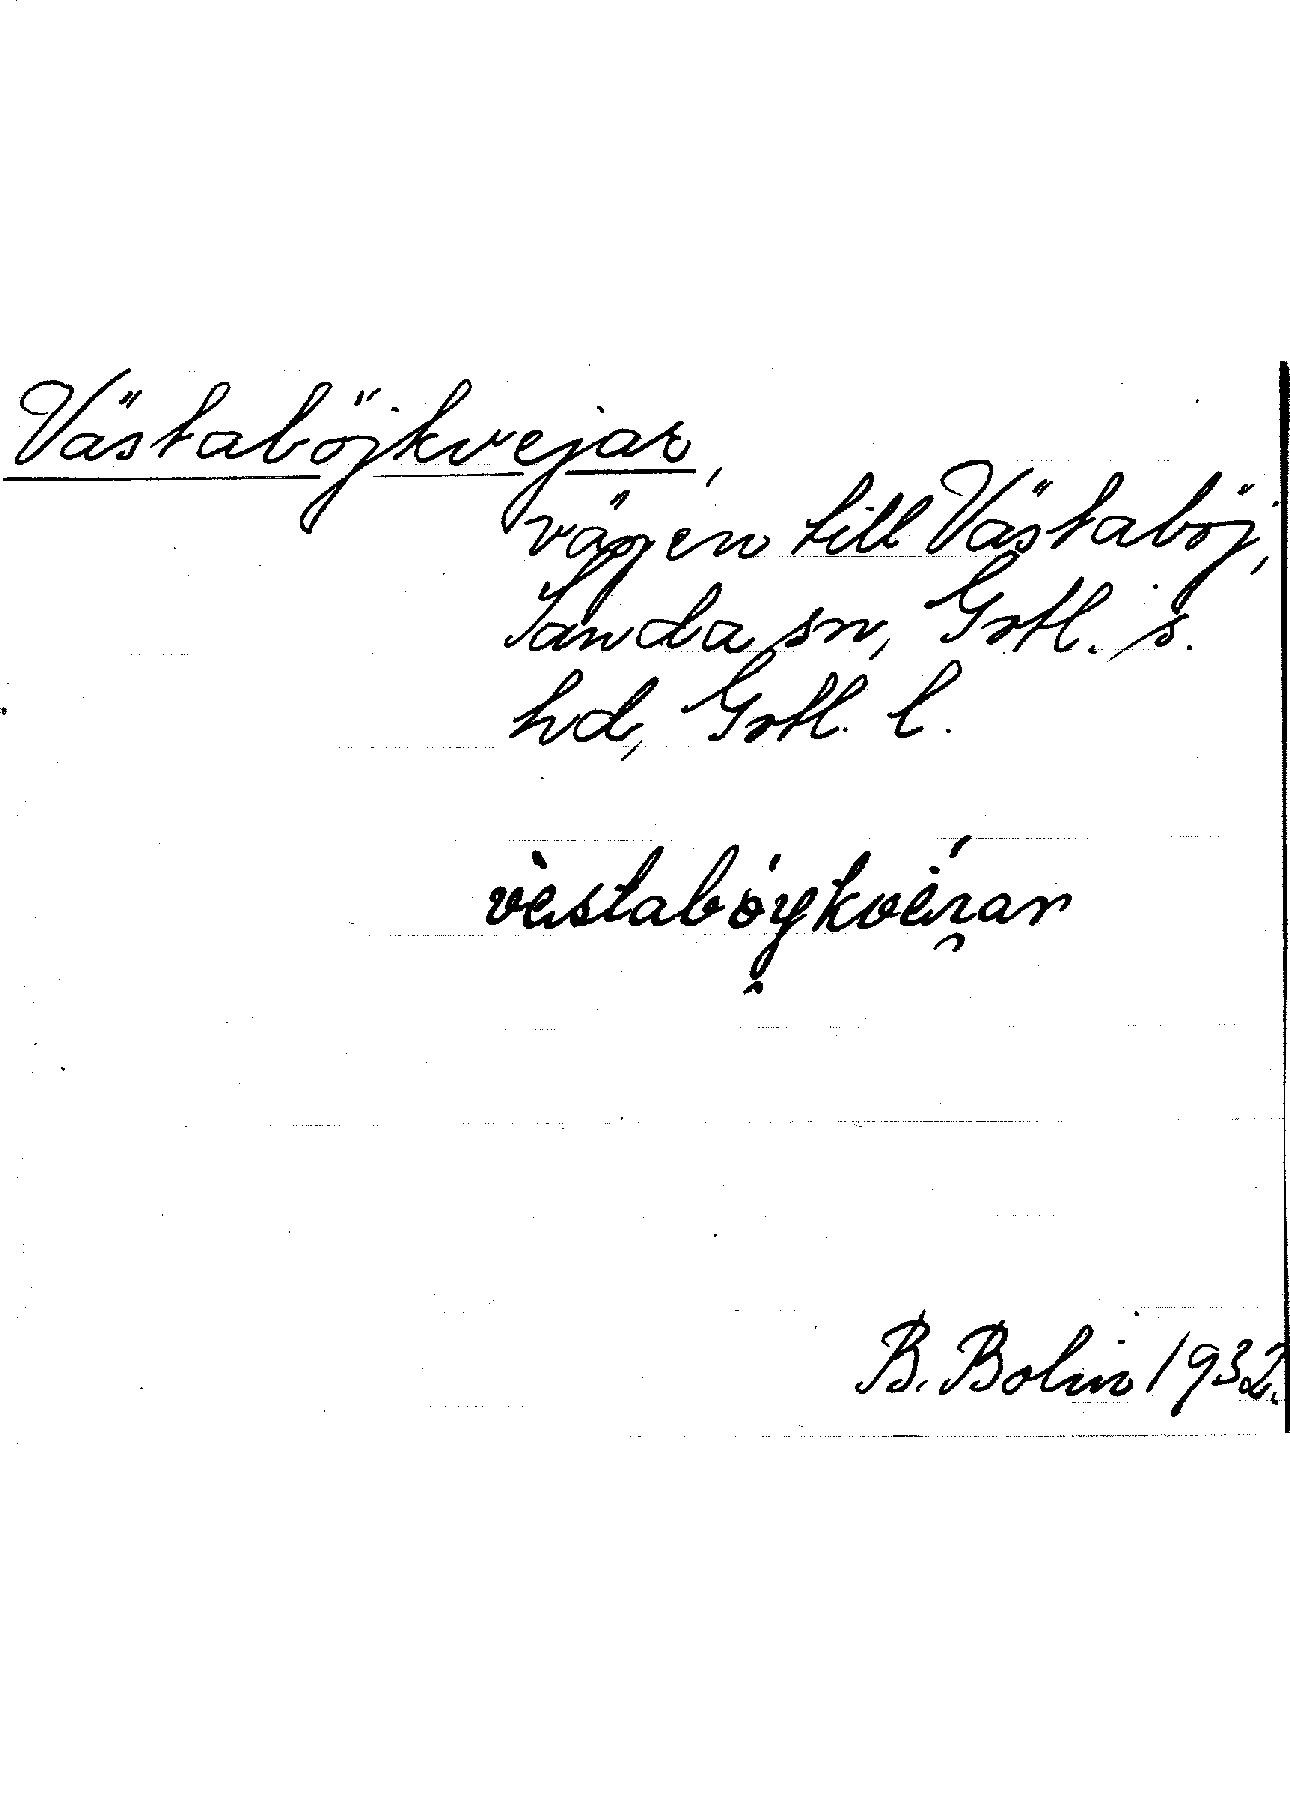 Västaböjkvejar,
vägen till Västaböj,
Sanda sn, Gotl. s.
hd, Gotl. l.
vèstabóykvèɪ̯ar
B. Bolin 1932.